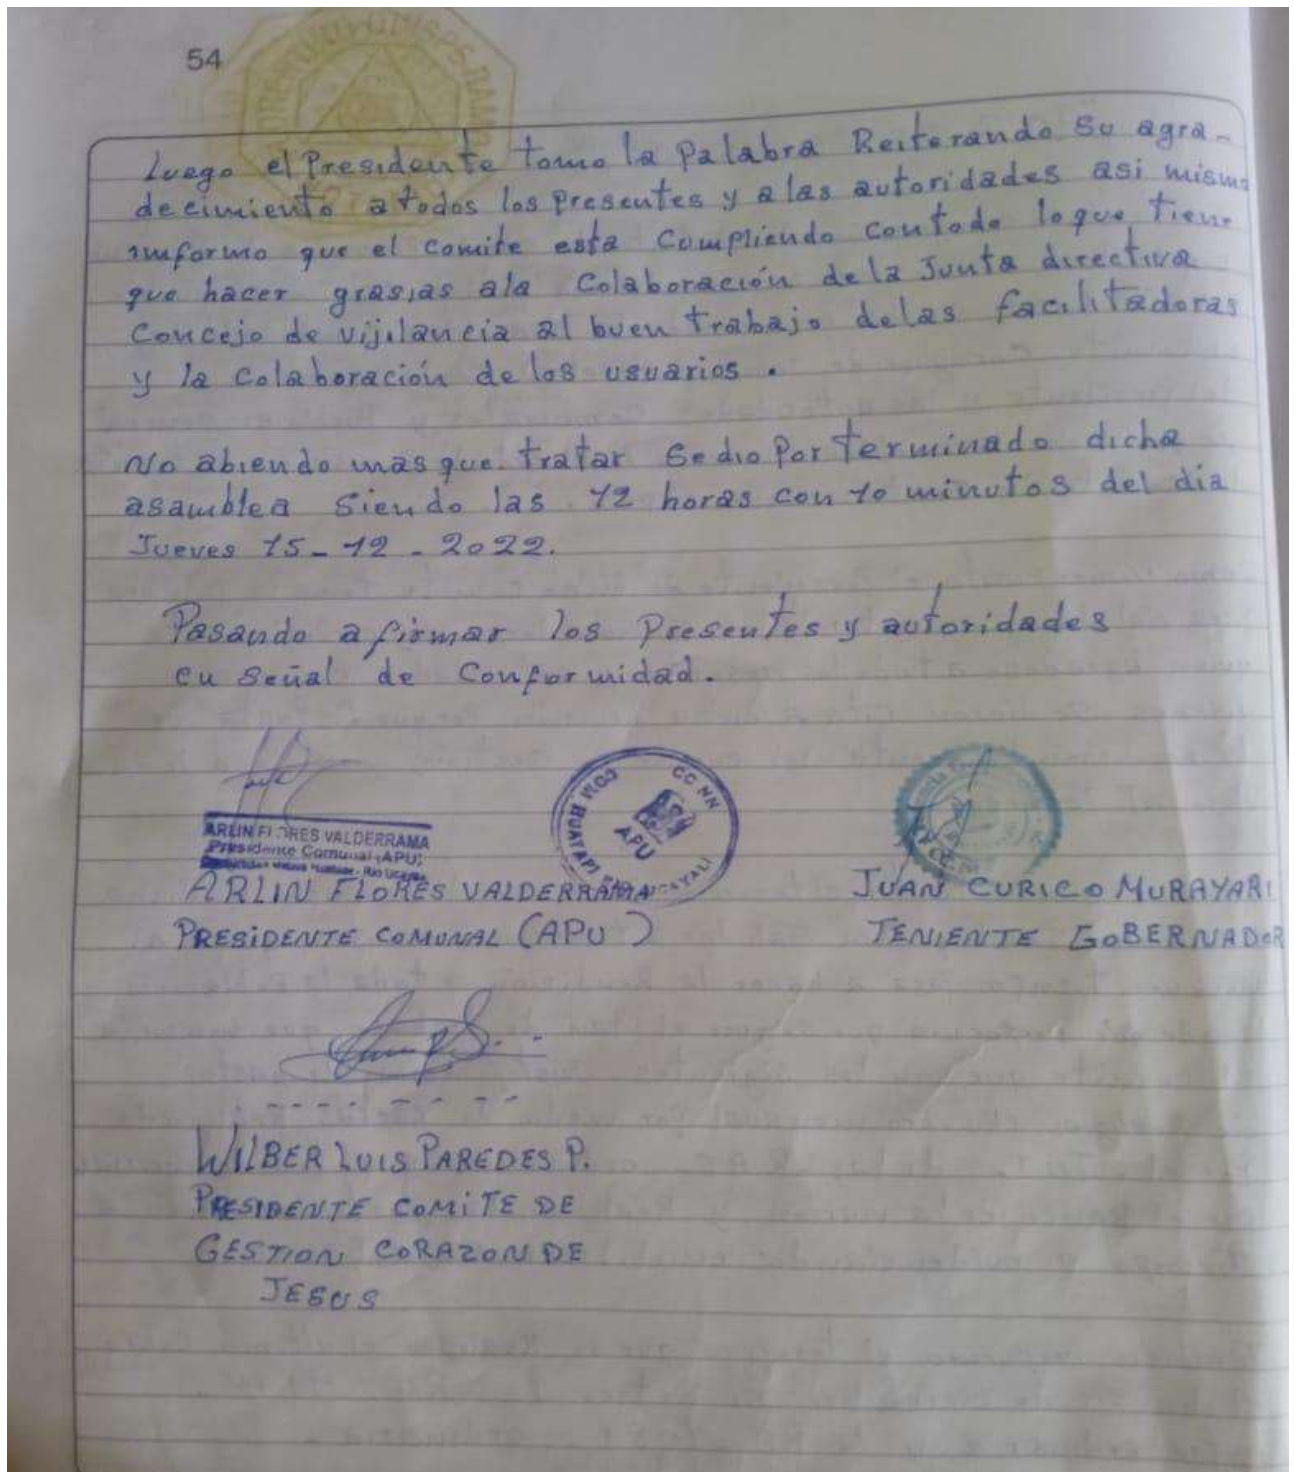 54
Luego el Presidente tomo la Palabra Reiterando su agra-
decimiento a todos los Presentes y a las autoridades asi mismo
imformo que el comite esta Cumpliendo con todo lo que tiene
que hacer grasias ala Colaboración de la Junta directiva
Concejo de vijilancia al buen trabajo delas facilitadoras
y la Colaboración de los usuarios.
No abiendo mas que tratar se dio Por terminado dicha
asamblea siendo las 12 horas con 10 minutos del dia
Jueves 15-12-2022.
Pasando a firmar los Presentes y autoridades
en señal de Conformidad.
ARLIN FLORES VALDERRAMA
Presidente Comunal (APU)
CC NN
APU
UCAYALI
ARLIN FLORES VALDERRAMA
PRESIDENTE COMUNAL (APU)
JUAN CURICO MURAYARI
TENIENTE GOBERNADOR
WILBER LUIS PAREDES P.
PRESIDENTE COMITE DE
GESTION CORAZON DE
JESUS